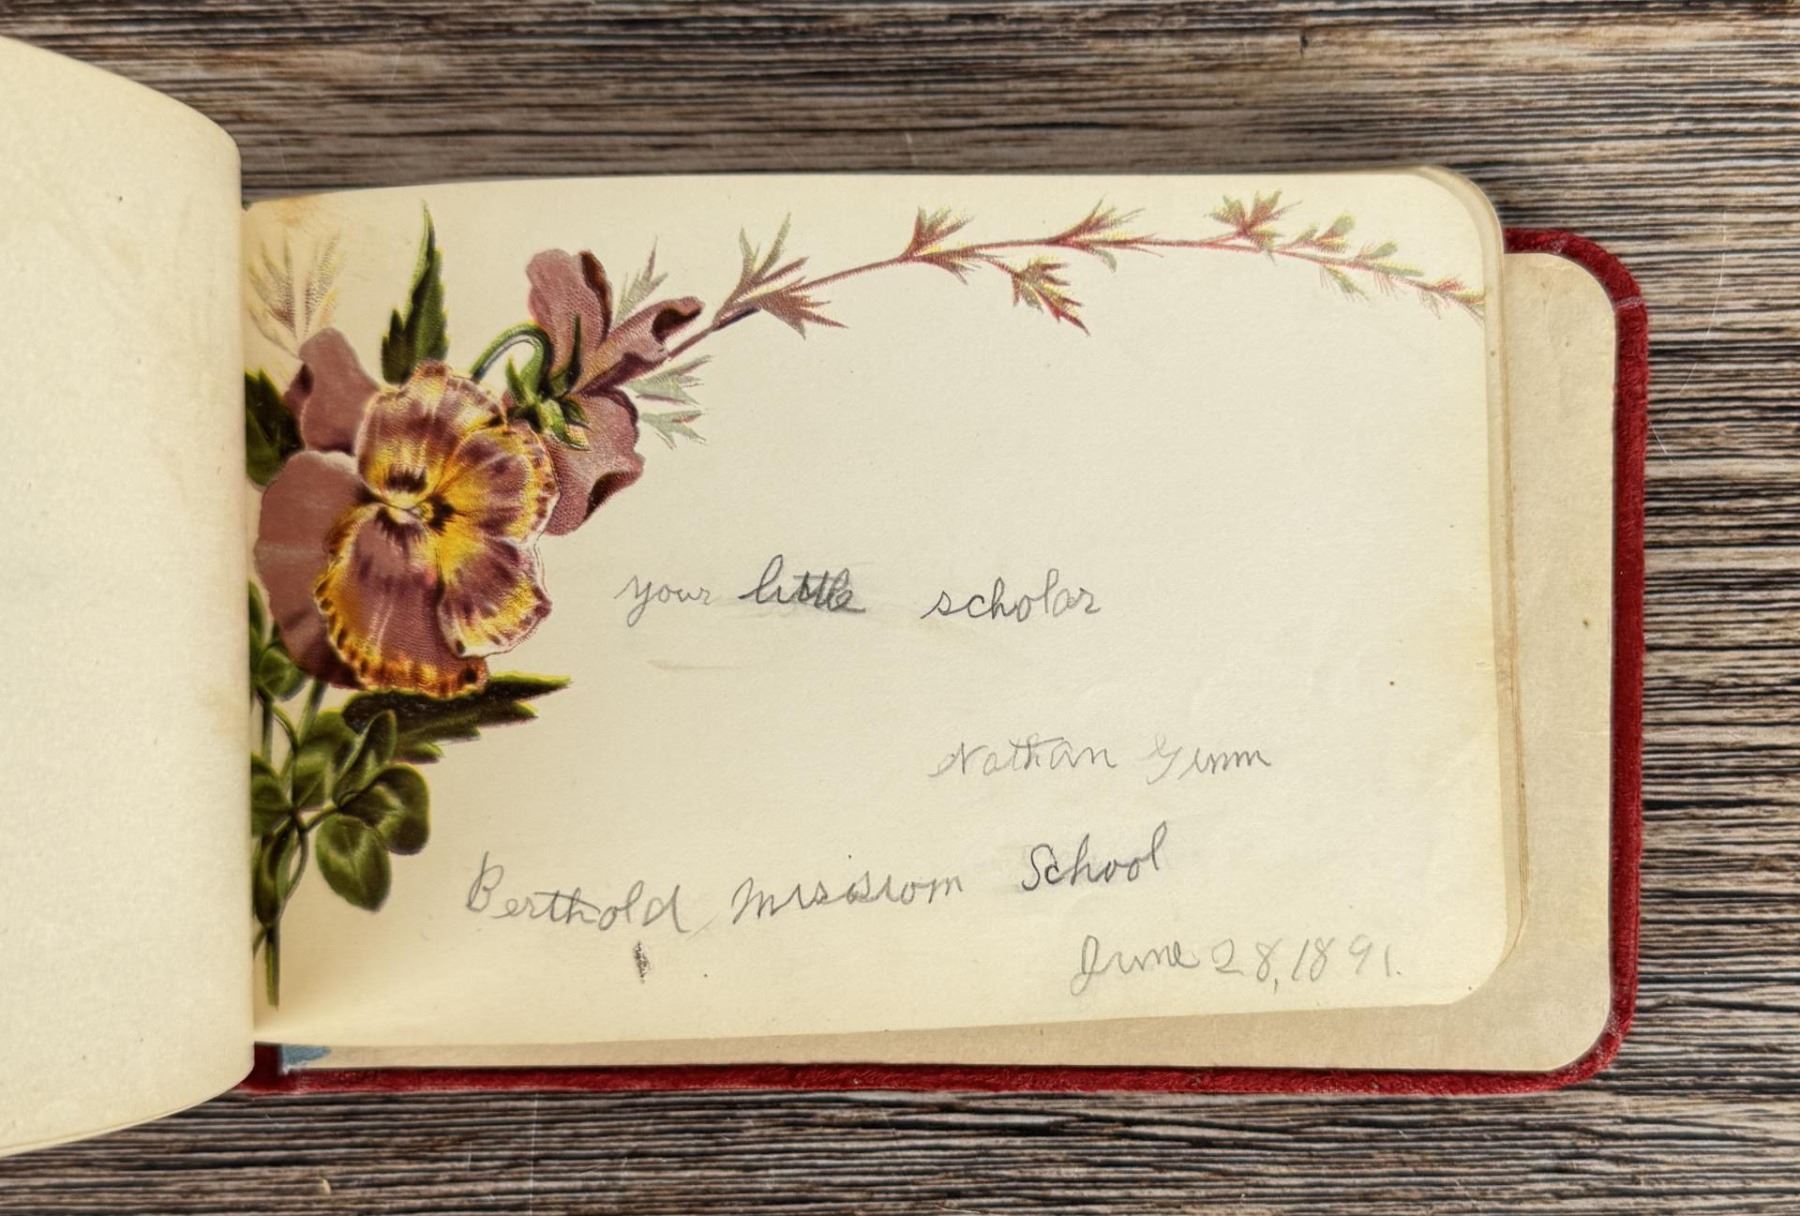 your little scholar
Nathan
Berthold Mission School
June 28, 1891.